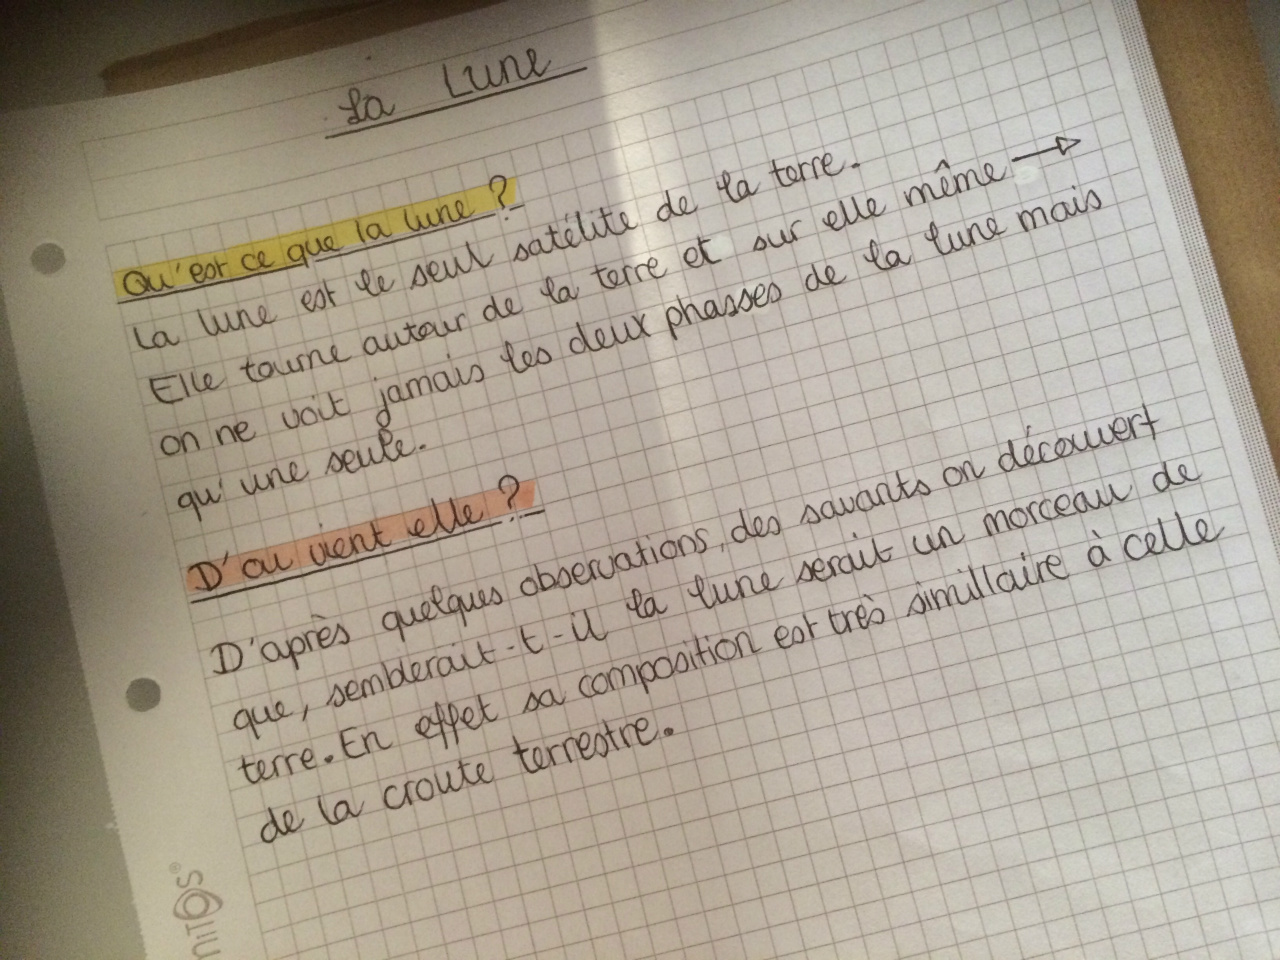 La Lune
Qu'est ce que la lune ?
La lune est le seul satélite de la terre.
Elle tourne autour de la terre et sur elle même →
on ne voit jamais les deux phasses de la lune mais
qu'une seule.
D'ou vient elle ?
D'après quelques observations, des savants on découvert
que, semblerait-t-il la lune serait un morceau de
terre. En effet sa composition est très simillaire à celle
de la croute terrestre.